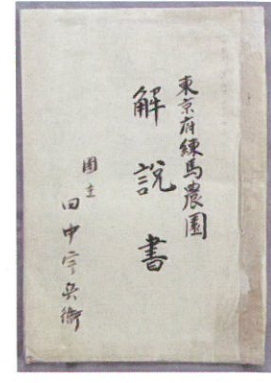 東京府練馬農園
解説書
園主
田中宇兵衛